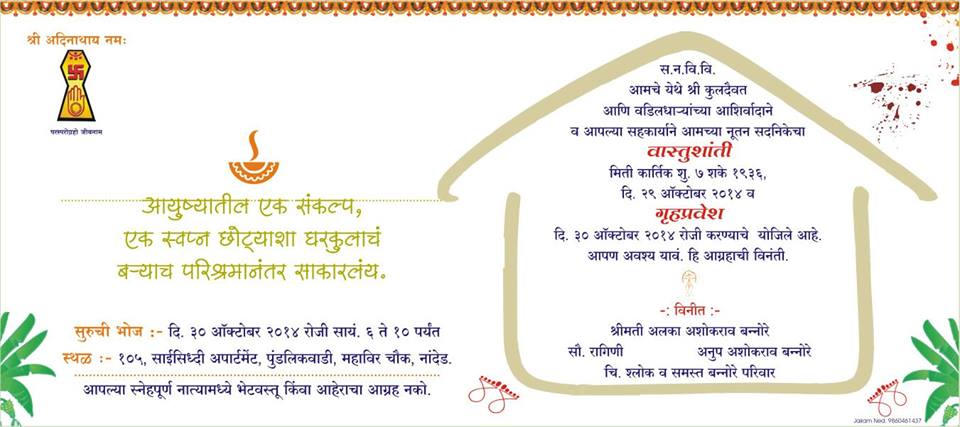 श्री अदिनाथाय नमः
परस्परोग्रहो जीवनाम
आयुष्यातील एक संकल्प,
एक स्वप्न छोट्याशा घरकुलाचं
बऱ्याच परिश्रमानंतर साकारलंय.
सुरुची भोज :- दि. ३० ऑक्टोबर २०१४ रोजी सायं. ६ ते १० पर्यंत
स्थळ :- १०५, साईसिध्दी अपार्टमेंट, पुंडलिकवाडी, महाविर चौक, नांदेड.
आपल्या स्नेहपूर्ण नात्यामध्ये भेटवस्तू किंवा आहेराचा आग्रह नको.
स.न.वि.वि.
आमचे येथे श्री कुलदैवत
आणि वडिलधाऱ्यांच्या आशिर्वादाने
व आपल्या सहकार्याने आमच्या नूतन सदनिकेचा
वास्तुशांती
मिती कार्तिक शु. ७ शके १९३६,
दि. २९ ऑक्टोबर २०१४ व
गृहप्रवेश
दि. ३० ऑक्टोबर २०१४ रोजी करण्याचे योजिले आहे.
आपण अवश्य यावं. हि आग्रहाची विनंती.
-: विनीत :-
श्रीमती अलका अशोकराव बन्नोरे
सौ. रागिणी अनुप अशोकराव बन्नोरे
चि. श्लोक व समस्त बन्नोरे परिवार
Jakam Ned. 9860461437